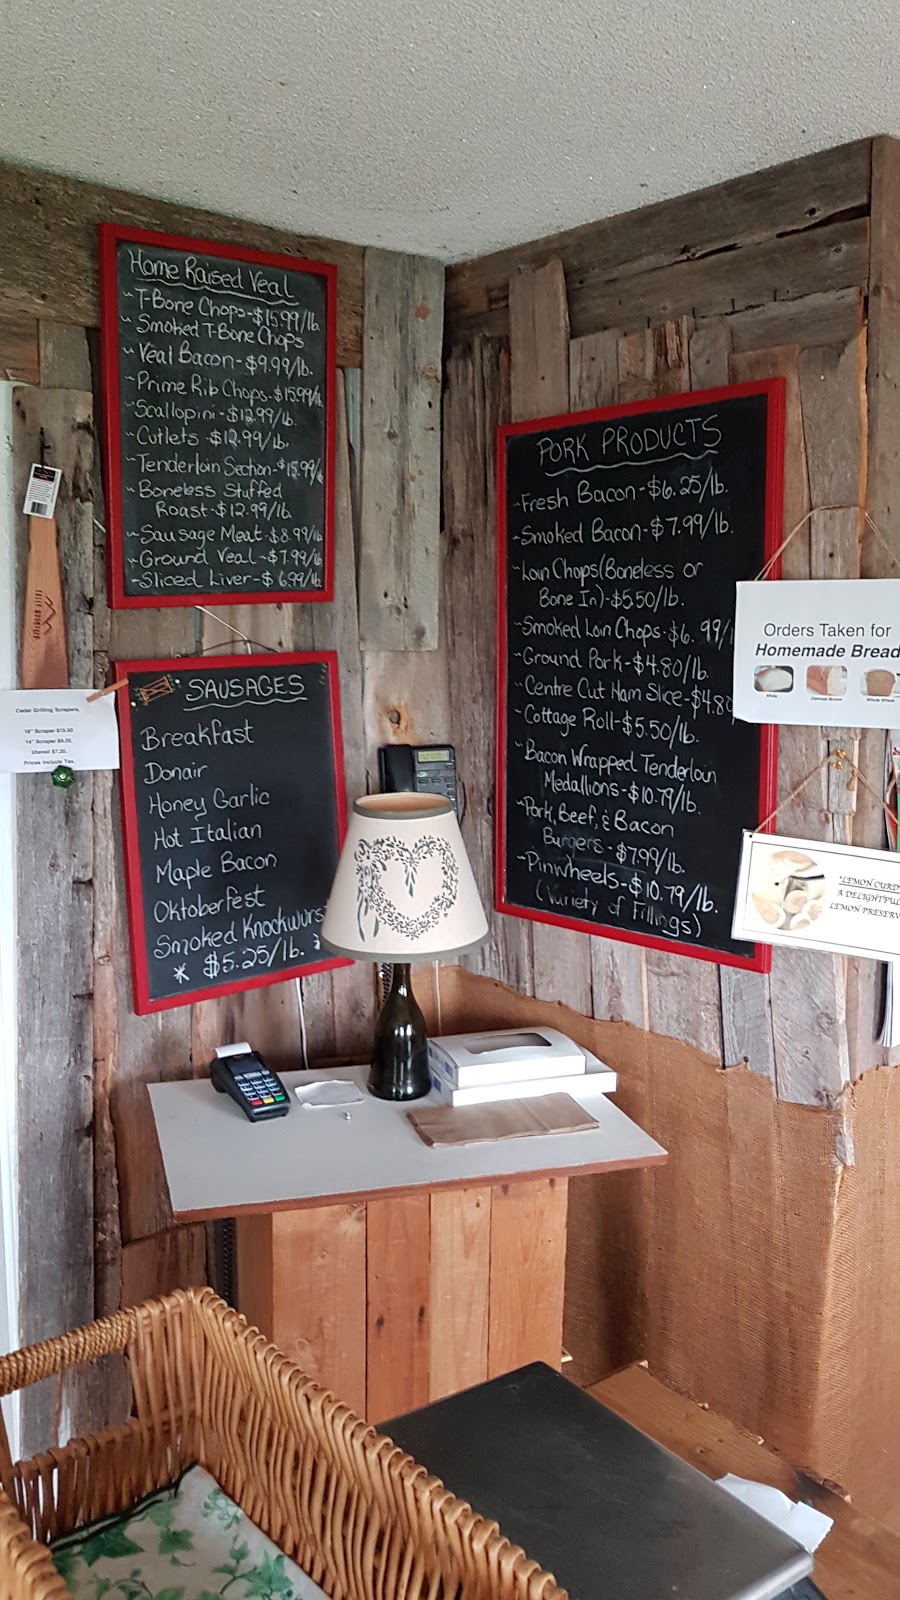 Home Raised Veal
~T-Bone Chops-$15.99/lb.
~Smoked T-Bone Chops
~Veal Bacon-$9.99/lb.
~Prime Rib Chops-$15.99/lb
~Scallopini-$12.99/lb.
~Cutlets-$12.99/lb.
~Tenderloin Section-$15.99/lb
~Boneless Stuffed
Roast-$12.99/lb.
~Sausage Meat-$8.99/lb
~Ground Veal-$7.99/lb
~Sliced Liver-$6.99/lb.
SAUSAGES
Breakfast
Donair
Honey Garlic
Hot Italian
Maple Bacon
Oktoberfest
Smoked Knockwurst
* $5.25/lb. *
PORK PRODUCTS
~Fresh Bacon-$6.25/lb.
~Smoked Bacon-$7.99/lb.
~Loin Chops(Boneless or
Bone In)-$5.50/lb.
~Smoked Loin Chops-$6.99/
~Ground Pork-$4.80/lb.
~Centre Cut Ham Slice-$4.80
~Cottage Roll-$5.50/lb.
~Bacon Wrapped Tenderloin
Medallions-$10.79/lb.
~Pork, Beef, & Bacon
Burgers-$7.99/lb.
~Pinwheels-$10.79/lb.
(Variety of Fillings)
Orders Taken for
Homemade Bread
White
Oatmeal Brown
Whole Wheat
"LEMON CURD"
A DELIGHTFUL
LEMON PRESERV
Cedar Grilling Scrapers,
18" Scraper $13.50
14" Scraper $9.20.
Utensil $7.20.
Prices Include Tax.